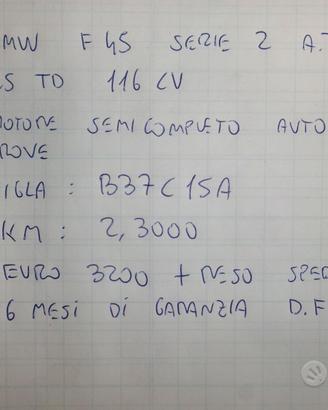 MW F45 SERIE 2 A.T
S TD 116 CV
OTORE SEMICOMPLETO AUTO
ROVE
IGLA : B37C15A
KM : 2,3000
EURO 3200 + RESO SPED
6 MESI DI GARANZIA D.F